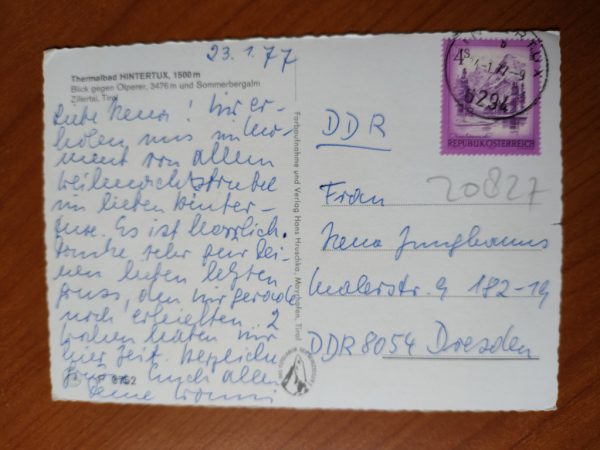 23.1.77
Thermalbad HINTERTUX, 1500 m
Blick gegen Olperer, 3476 m und Sommerbergalm
Zillertal, Tirol
Liebe Xena! Wir er-
holen uns im Mo-
ment von allem
Weihnachtstrubel
im lieben Hinter-
tux. Es ist herrlich.
Danke sehr für Dei-
nen lieben letzten
Gruss, den wir gerade
noch erhielten. 2
Wochen haben wir
hier Zeit. Herzliche
Grüße Euch allen
Deine
P 8752
Farbaufnahme und Verlag Hans Hruschka, Mayrhofen, Tirol
4 S
REPUBLIK ÖSTERREICH
6294
DDR
20827
Frau
Xena Junghanns
Malerstr. 9 182-19
DDR 8054 Dresden